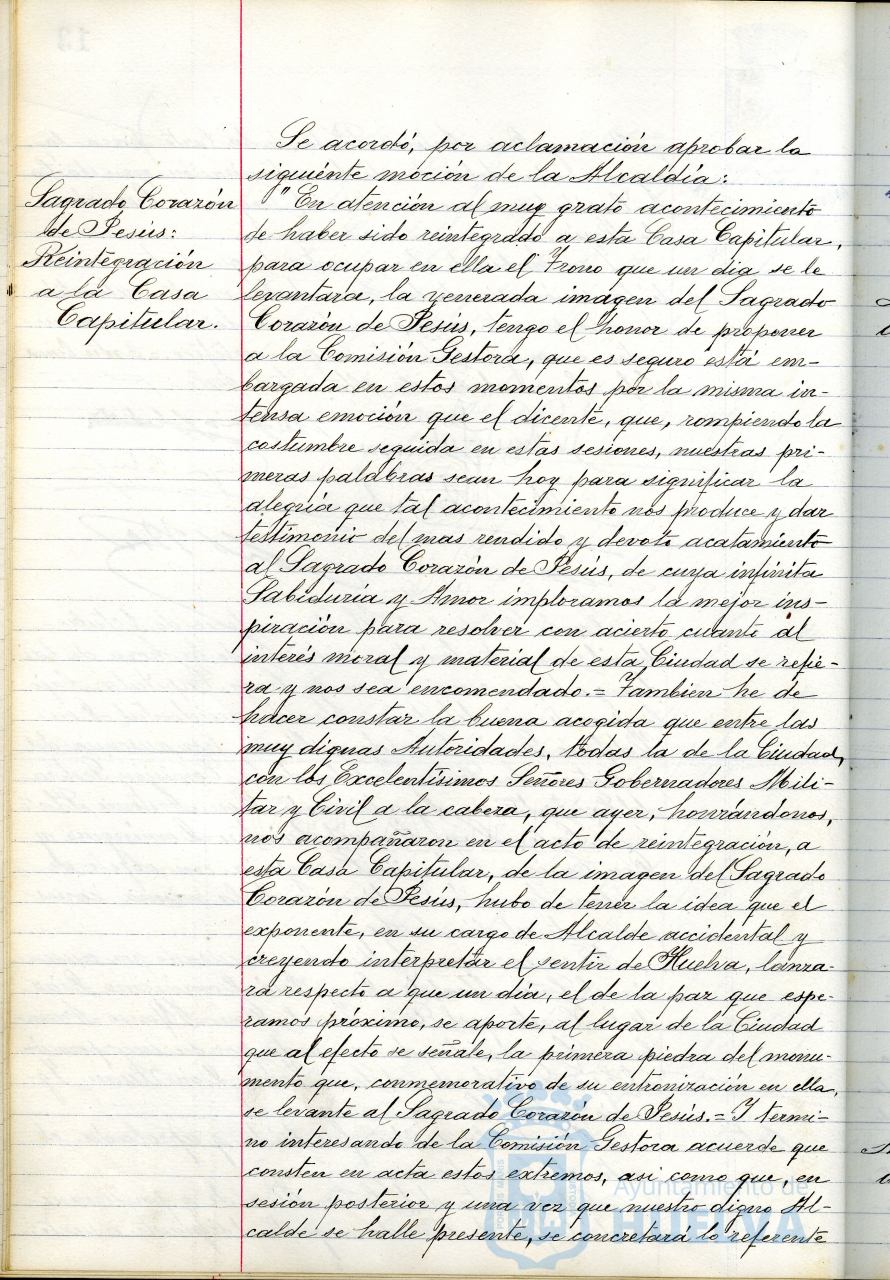 Se acordó, por aclamación aprobar la
siguiénte moción de la Alcaldía:
Sagrado Corazón
de Jesús:
Reintegración
a la Casa
Capitular.
"En atención al muy grato acontecimiento
de haber sido reintegrado a esta Casa Capitular,
para ocupar en ella el Trono que un dia se le
levantara, la venerada imagen del Sagrado
Corazón de Jesús, tengo el honor de proponer
a la Comisión Gestora, que es seguro está em-
bargada en estos momentos por la misma in-
tensa emoción que el dicente, que, rompiendo la
costumbre seguida en estas sesiones, nuestras pri-
meras palabras sean hoy para significar la
alegría que tal acontecimiento nos produce y dar
testimonio del mas rendido y devoto acatamiento
al Sagrado Corazón de Jesús, de cuya infinita
Sabiduría y Amor imploramos la mejor ins-
piración para resolver con acierto cuanto al
interés moral y material de esta Ciudad se refie-
ra y nos sea encomendado.= Tambien he de
hacer constar la buena acogida que entre las
muy dignas Autoridades, todas la de la Ciudad,
con los Excelentísimos Señores Gobernadores Mili-
tar y Civil a la cabeza, que ayer, honrándonos,
nos acompañaron en el acto de reintegración, a
esta Casa Capitular, de la imagen del Sagrado
Corazón de Jesús, hubo de tener la idea que el
exponente, en su cargo de Alcalde accidental y
creyendo interpretar el sentir de Huelva, lanza-
ra respecto a que un día, el de la paz que espe-
ramos próximo, se aporte, al lugar de la Ciudad
que al efecto se señale, la primera piedra del monu-
mento que, conmemorativo de su entronización en ella,
se levante al Sagrado Corazón de Jesús.= Y termi-
no interesando de la Comisión Gestora acuerde que
consten en acta estos extremos, asi como que, en
sesión posterior y una vez que nuestro digno Al-
calde se halle presente, se concretará lo referente
Ayuntamiento de
HUELVA